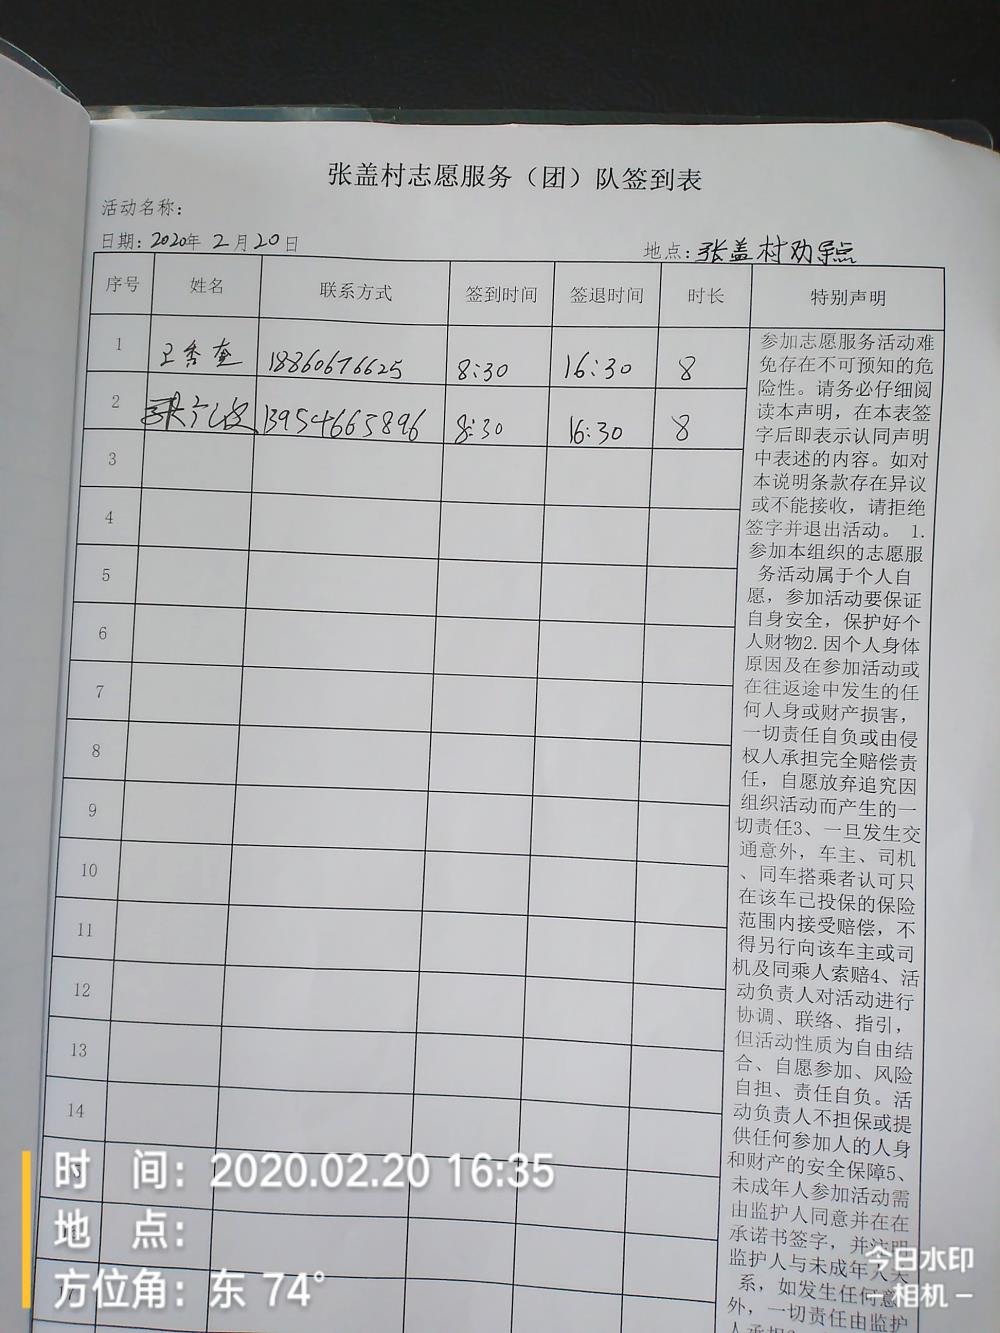 张盖村志愿服务（团）队签到表
活动名称：
日期：2020年 2月20日
地点：张盖村劝导点
序号 姓名 联系方式 签到时间 签退时间 时长 特别声明
1 18860676625 8:30 16:30 8
2 13954665896 8:30 16:30 8
3
4
5
6
7
8
9
10
11
12
13
14
参加志愿服务活动难
免存在不可预知的危
险性。请务必仔细阅
读本声明，在本表签
字后即表示认同声明
中表述的内容。如对
本说明条款存在异议
或不能接收，请拒绝
签字并退出活动。 1.
参加本组织的志愿服
务活动属于个人自
愿，参加活动要保证
自身安全，保护好个
人财物2.因个人身体
原因及在参加活动或
在往返途中发生的任
何人身或财产损害，
一切责任自负或由侵
权人承担完全赔偿责
任，自愿放弃追究因
组织活动而产生的一
切责任3、一旦发生交
通意外，车主、司机
、同车搭乘者认可只
在该车已投保的保险
范围内接受赔偿，不
得另行向该车主或司
机及同乘人索赔4、活
动负责人对活动进行
协调、联络、指引，
但活动性质为自由结
合、自愿参加、风险
自担、责任自负。活
动负责人不担保或提
供任何参加人的人身
和财产的安全保障5、
未成年人参加活动需
由监护人同意并在在
承诺书签字，并注明
监护人与未成年人关
系，如发生任何意
外，一切责任由监护
时 间：2020.02.20 16:35
地 点：
方位角：东 74°
今日水印
相机